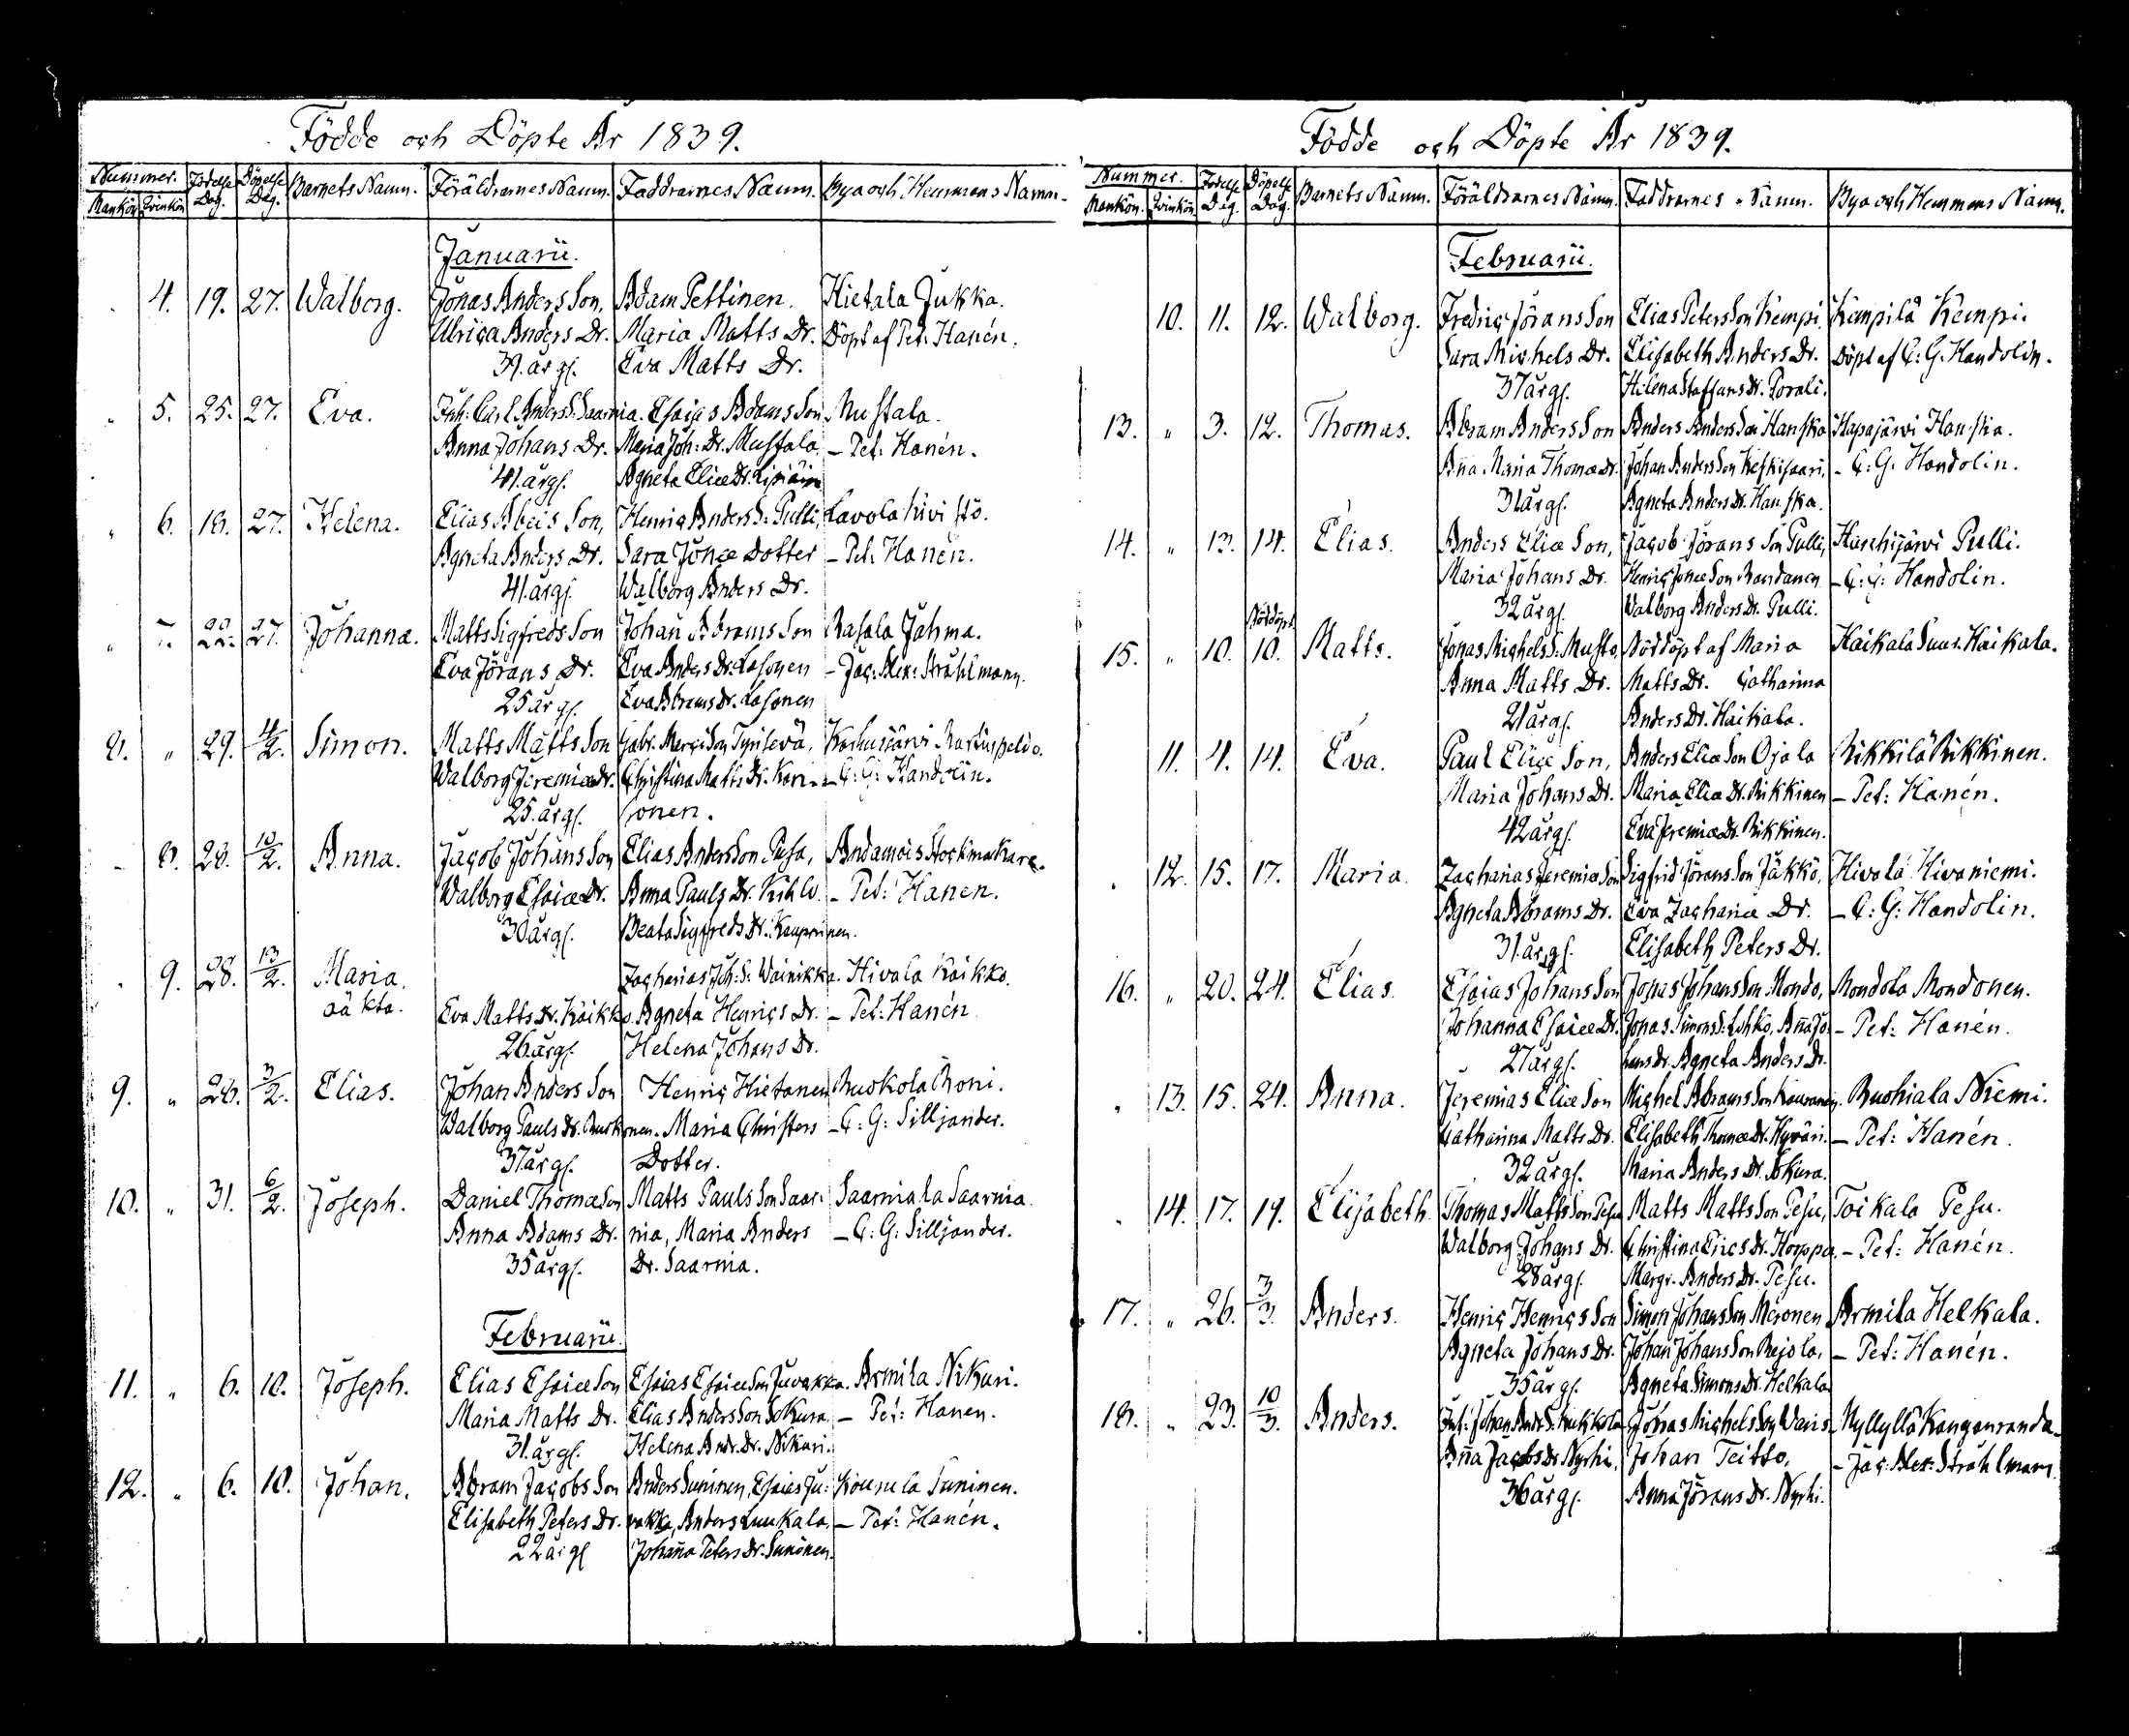 Födde och Döpte År 1839.
Nummer. Födelse Döpelse Barnets Namn. Föräldrarnes Namn. Faddrarnes Namn. Bya och Hemmans Namn.
Mankön. Qvinkön. Dag. Dag.
Januarii.
4. 19. 27. Walborg. Jonas Anders Son, Adam Pettinen. Hietala Jukka.
Ulrica Anders Dr. Maria Matts Dr. Döpt af Pet: Hanén.
39. årg. Eva Matts Dr.
" 5. 25. 27. Eva. Inh: Carl Anders S. Saarnia. Esaias Adams Son Mustala.
Anna Johans Dr. Maria Joh: Dr. Mustala, – Pet: Hanén.
41. årg. Agneta Eliæ Dr.
" 6. 18. 27. Helena. Elias Abeis Son, Henric Anders S: Pulli, Lavola Kivistö.
Agneta Anders Dr. Sara Jonæ Dotter – Pet: Hanén.
41. årg. Walborg Anders Dr.
" 7. 22. 27. Johanna. Matts Sigfreds Son Johan Abrams Son Rasala Jahma.
Eva Jörans Dr. Eva Anders Dr. Lasonen – Jac: Alex: Stråhlmann.
25 årg. Eva Abrams Dr. Lasonen
8. " 29. 4/2. Simon. Matts Matts Son Gabr. Merci Son Tyrisevä, Karhusjärvi Martuspeldo.
Walborg Jeremiæ Dr. Christina Matts Dr. Kari- – C: G: Handolin.
25. årg. sonen.
8. 28. 10/2. Anna. Jacob Johans Son Elias Anders Son Pusa, Andamois Stockmakare.
Walborg Esaiæ Dr. Anna Pauls Dr. – Pet: Hanen.
30 årg. Beata Sigfreds Dr. Kauppinen.
9. 28. 13/2. Maria. Zacharias Joh: S: Wainikka. Hivala Kaikko.
oäkta. Eva Matts Dr. Kaikko. Agneta Henrics Dr. – Pet: Hanén
26. årg. Helena Johans Dr.
9. " 28. 3/2. Elias. Johan Anders Son Henric Hietanen Ruokola Roni.
Walborg Pauls Dr. Maria Christers – C: G: Silljander.
37. årg. Dotter.
10. " 31. 6/2. Joseph. Daniel Thomæ Son Matts Pauls Son Saar- Saarniala Saarnia.
Anna Adams Dr. nia, Maria Anders – C: G: Silljander.
35 årg. Dr. Saarnia.
Februarii.
11. " 6. 10. Joseph. Elias Esaiæ Son Esaias Esaiæ Son Juvakka. Armila Nikuri.
Maria Matts Dr. Elias Anders Son Sokura – Pet: Hanen.
31. årg. Helena Andr. Dr. Nikuri.
12. " 6. 10. Johan. Abram Jacobs Son Anders Suninen, Esaias Ju- Kounola Suninen.
Elisabeth Peters Dr. vakka, Anders Luukala, – Pet: Hanén.
22 årg. Johanna Peters Dr. Suninen.
Födde och Döpte År 1839.
Nummer. Födelse Döpelse Barnets Namn. Föräldrarnes Namn. Faddrarnes Namn. Bya och Hemmans Namn.
Mankön. Qvinkön. Dag. Dag.
Februarii.
10. 11. 12. Walborg. Fredric Jörans Son Elias Peters Son Kempi Kempilä Kempi.
Sara Michels Dr. Elisabeth Anders Dr. Döpt af C: G: Handolin.
37 årg. Helena Staffans Dr. Porali.
13. " 3. 12. Thomas. Abram Anders Son Anders Anders Son Hanska Hapajärvi Hanska.
Anna Maria Thomæ Dr. Johan Anders Son Keskisaari, – C: G: Handolin.
31 årg. Agneta Anders Dr. Hanska.
14. " 13. 14. Elias. Anders Eliæ Son, Jacob Jörans Son Pulli, Hanhijärvi Pulli.
Maria Johans Dr. Henric Jonæ Son Randanen – C: G: Handolin.
32 årg. Walborg Anders Dr. Pulli.
Nöddöpt
15. " 10. 10. Matts. Jonas Michels S. Musto, Nöddöpt af Maria Haikala Suur. Haikala.
Anna Matts Dr. Matts Dr. Catharina
21 årg. Anders Dr. Haikala.
11. 4. 14. Eva. Paul Eliæ Son, Anders Eliæ Son Ojala Rikkilä Rikkinen.
Maria Johans Dr. Maria Eliæ Dr. Rikkinen – Pet: Hanén.
42 årg. Eva Jeremiæ Dr. Rikkinen.
12. 15. 17. Maria. Zacharias Jeremiæ Son Sigfrid Jörans Son Jäkkö, Hivala Hivaniemi.
Agneta Abrams Dr. Eva Zachariæ Dr. – C: G: Handolin.
31. årg. Elisabeth Peters Dr.
16. " 20. 24. Elias. Esaias Johans Son Jonas Johans Son Mondo, Mondola Mondonen.
Johanna Esaiæ Dr. Jonas Simons S: Lohko, Anna Jo- – Pet: Hanén.
27 årg. hans Dr. Agneta Anders Dr.
" 13. 15. 24. Anna. Jeremias Eliæ Son Michel Abrams Son Kauranen. Ruohiala Niemi.
Catharina Matts Dr. Elisabeth Thomæ Dr. Hyväri. – Pet: Hanén.
32 årg. Maria Anders Dr. Sokura.
14. 17. 19. Elisabeth. Thomas Matts Son Pesu Matts Matts Son Pesu, Toikala Pesu.
Walborg Johans Dr. Christina Erics Dr. Horppa. – Pet: Hanén.
28 årg. Margr. Anders Dr. Pesu.
17. " 26. 3/3. Anders. Henric Henrics Son Simon Johans Son Meronen Armila Helkala.
Agneta Johans Dr. Johan Johans Son Rejola, – Pet: Hanén.
35 årg. Agneta Simons Dr. Helkala
18. " 23. 10/3. Anders. Inh: Johan Andr. S. Kukkola Jonas Michels Son Varis Myllylä Kangasranda.
Anna Jacobs Dr. Nyrhi, Johan Teitto, – Jac: Alex: Stråhlmann
36 årg. Anna Jörans Dr. Nyrhi.